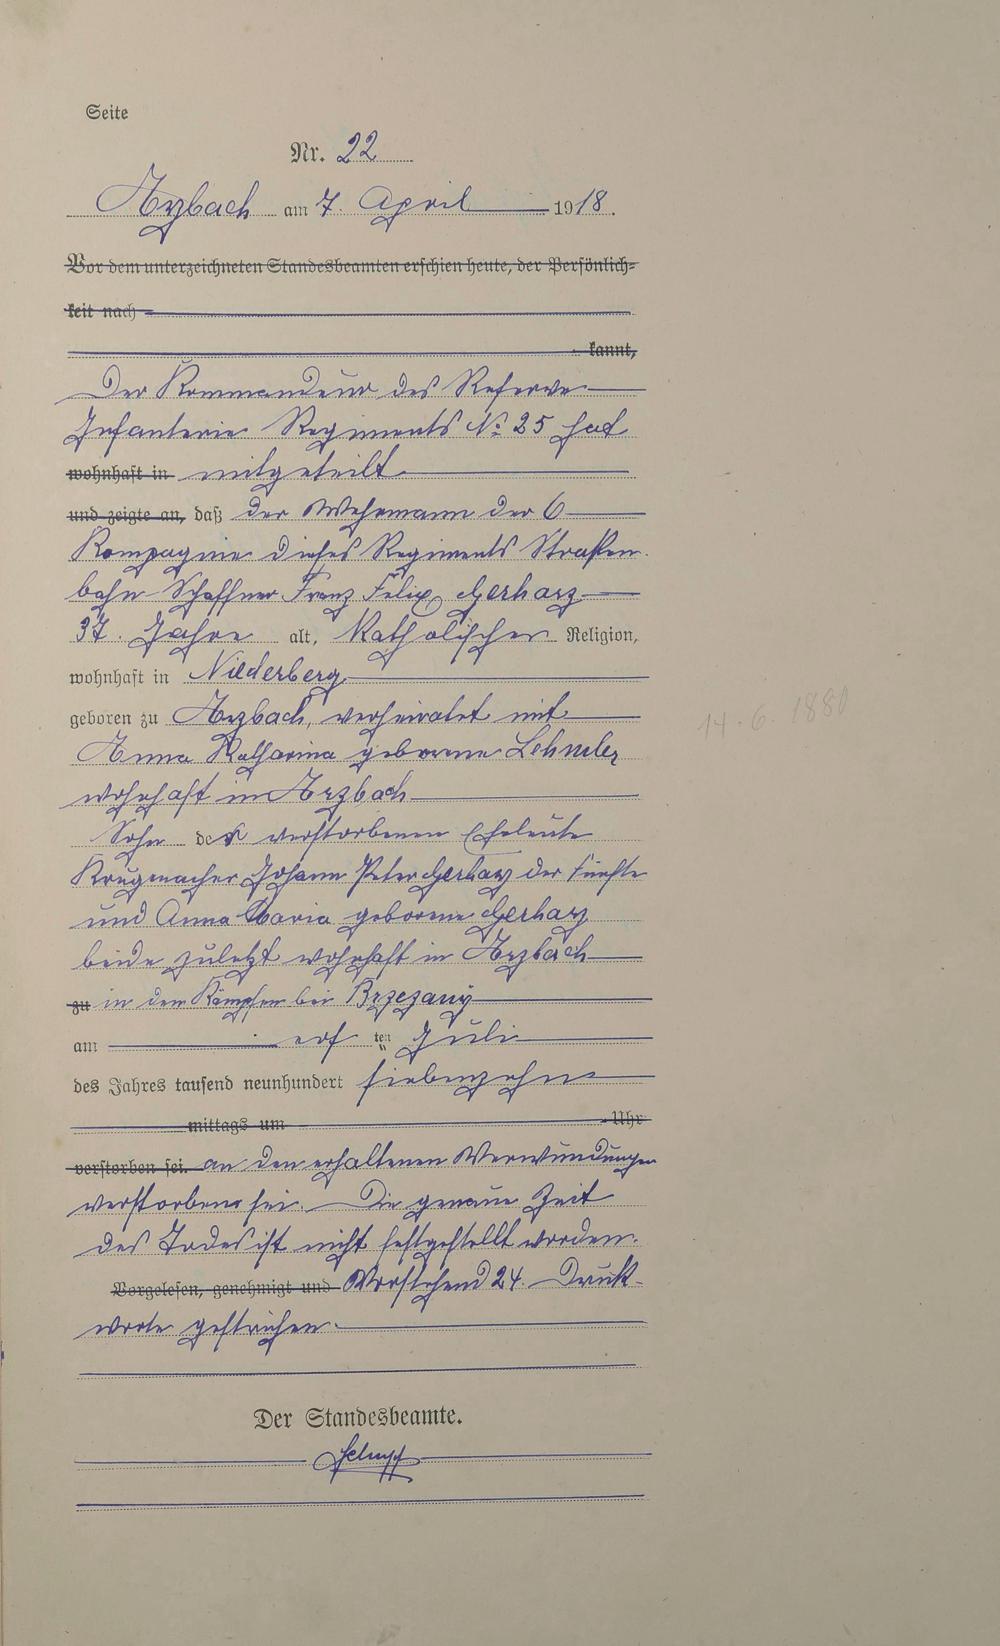 Seite
Nr. 22
Arzbach am 7. April 1918.
Vor dem unterzeichneten Standesbeamten erschien heute, der Persönlich-
keit nach
kannt,
Der Kommandeur des Reserve
Infanterie Regiments No 25 hat
wohnhaft in mitgeteilt
und zeigte an, daß der Wehrmann der 6
Kompagnie dieses Regiments Straßen-
bahn Schaffner Franz Felix Gerharz
37. Jahre alt, Katholischer Religion,
wohnhaft in Niederberg
geboren zu Arzbach, verheiratet mit
Anna Katharina geborene
wohnhaft in Arzbach
Sohn der verstorbenen Eheleute
Krugmacher Johann Peter Gerharz der fünfte
und Anna Maria geborene Gerharz
beide zuletzt wohnhaft in Arzbach
zu in den Kämpfen bei Brzezany
am elf ten Juli
des Jahres tausend neunhundert siebenzehn
mittags um Uhr
verstorben sei. an den erhaltenen Verwundungen
verstorben sei. Die genaue Zeit
des Todes ist nicht festgestellt worden.
Vorgelesen, genehmigt und Vorstehend 24. Druck-
worte gestrichen.
Der Standesbeamte.
14.6.1880